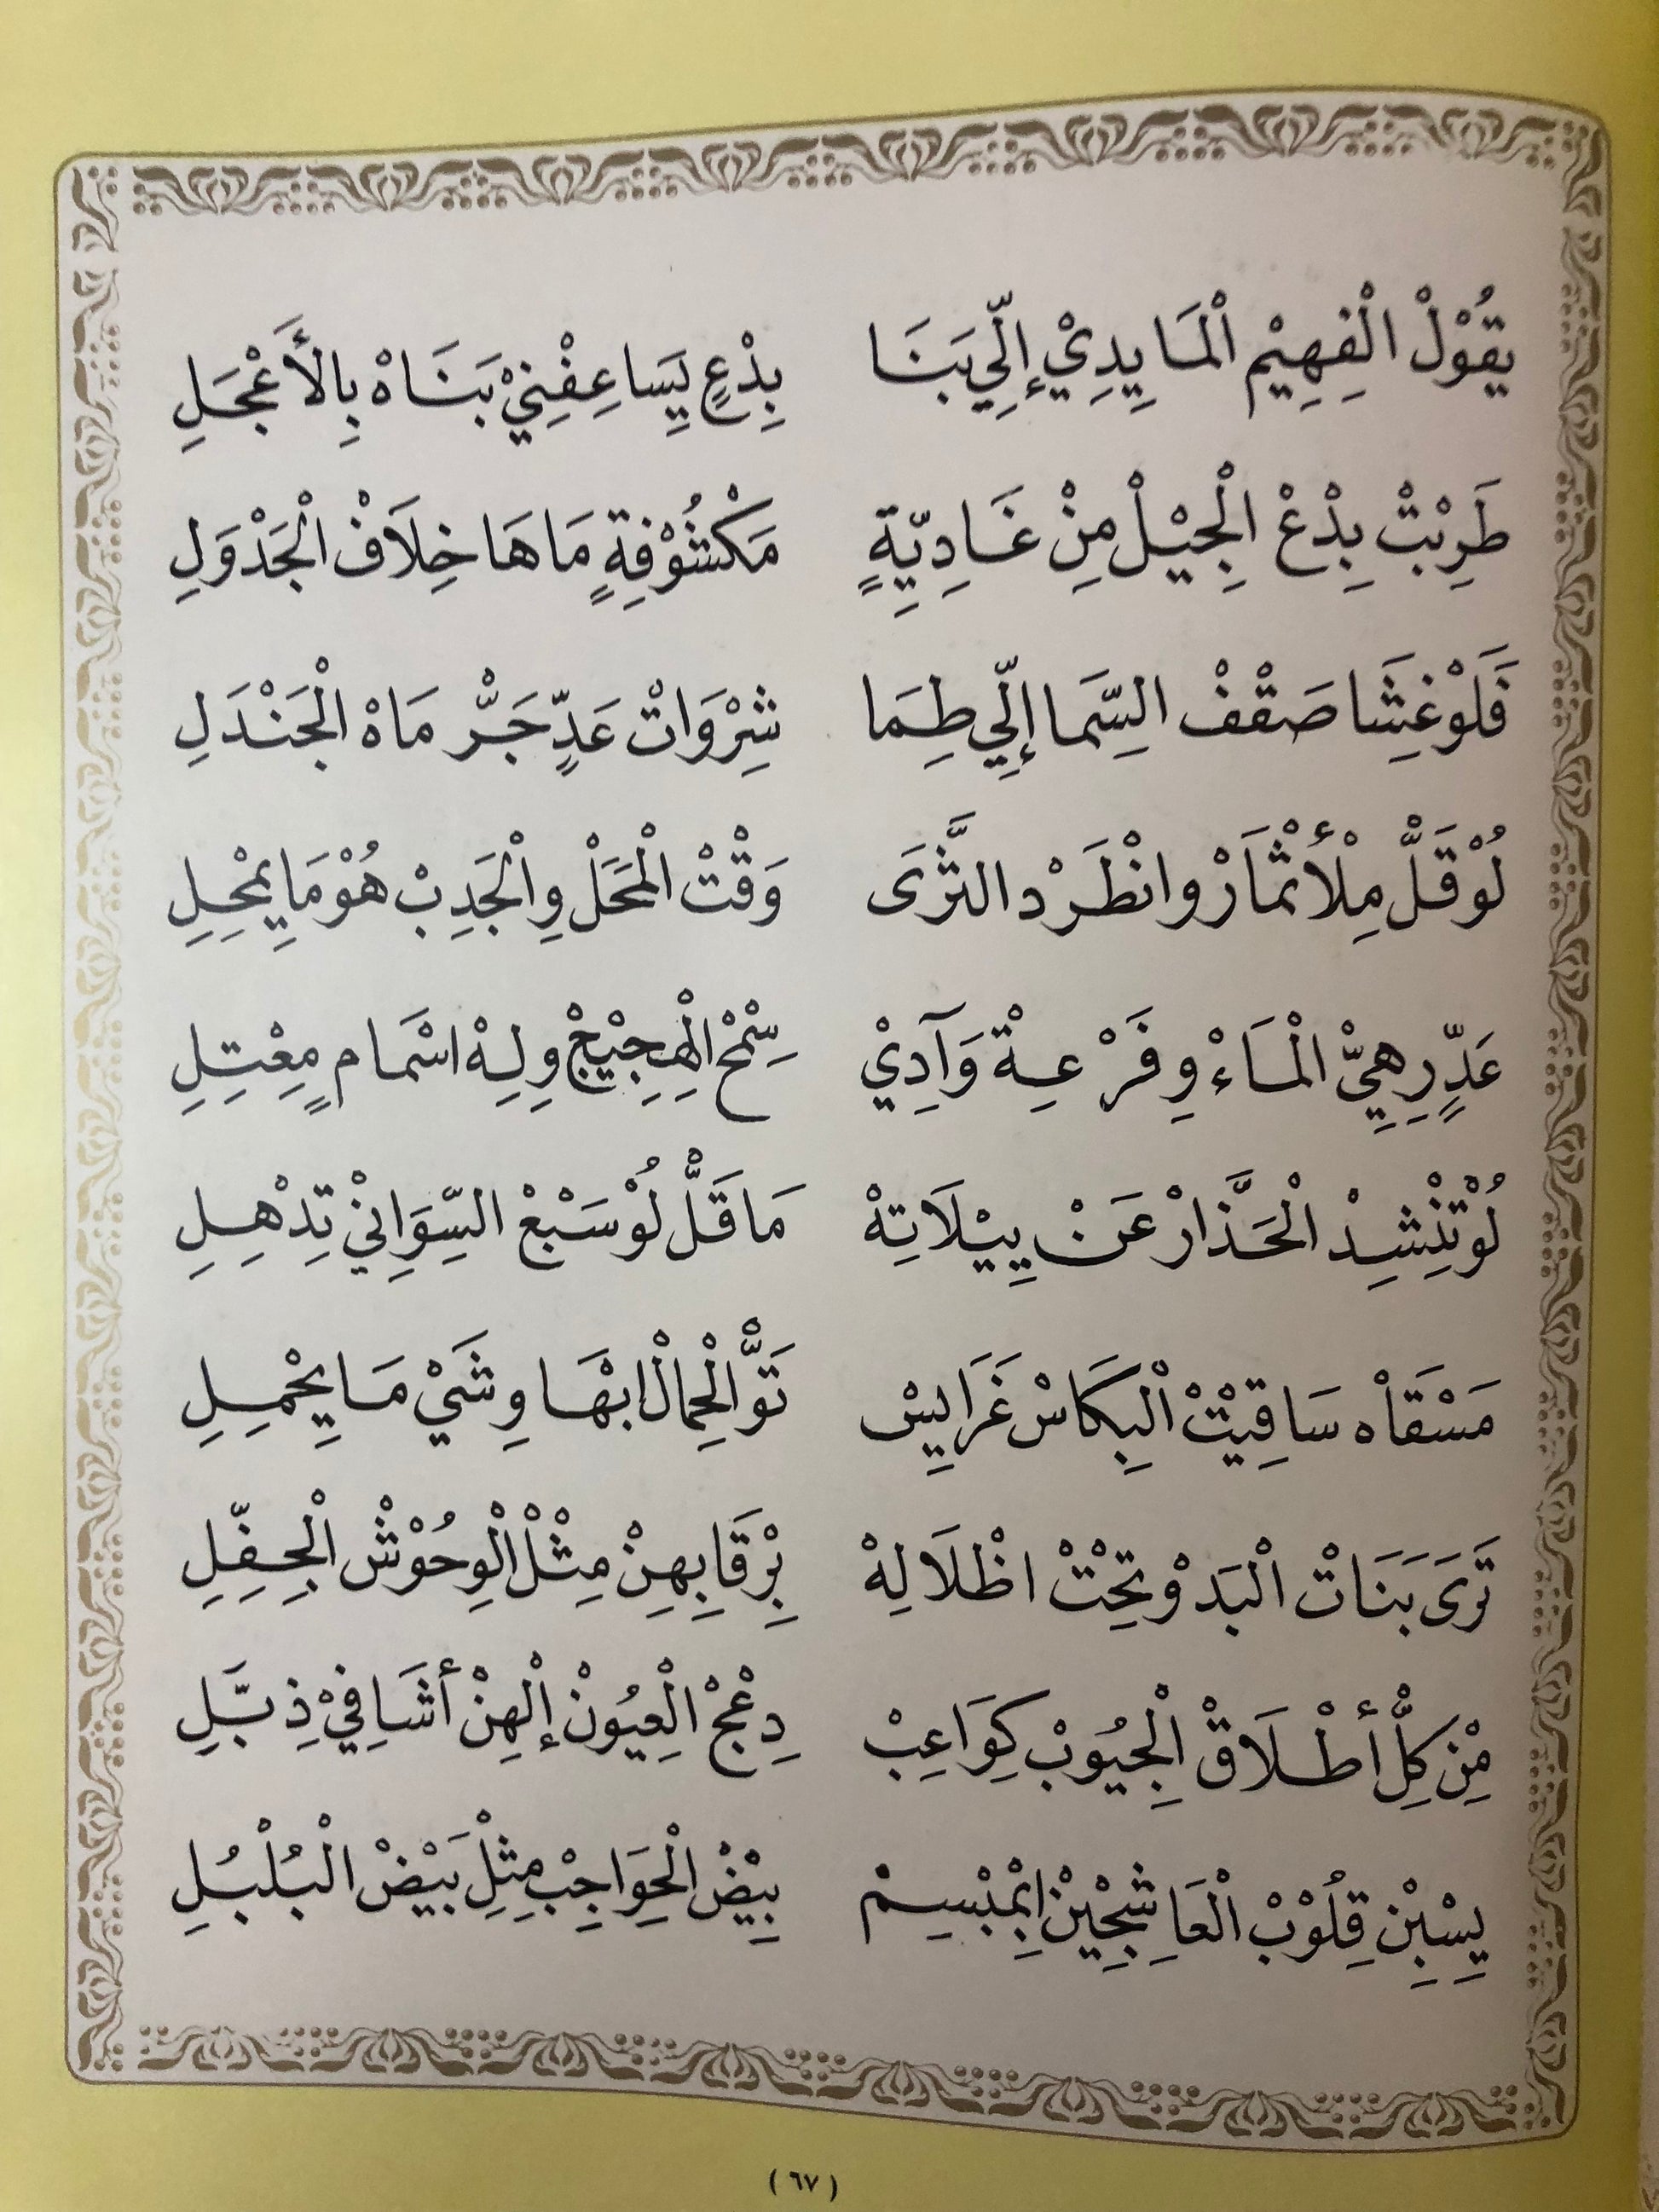 يقُوْلْ الْفِهِيْم الْمَايِدِيْ إلِّي بَنَا بِدْعٍ يِسَاعِفْنِيْ بَنَاهْ بِالأَعْجَلِ
طَرِبْتْ بِدْعْ الْجِيْلْ مِنْ غَادِيّةٍ مَكْشُوْفِةٍ مَاهَا خِلَافْ الْجَدْوَلِ
فَلَوْ غِشَا صَقْفْ السِّمَا إلِّي طِمَا شِرْوَاتْ عَدٍّ جَرّْ مَاهْ الْجَنْدَلِ
لُوْ قَلّْ مِلْأثْمَارْ وانْظَرْد الثَّرَى وَقْتْ الْمَحَلْ والْجَدِبْ هُوْ مَا يِمْحِلِ
عَدٍّ رِهِيّْ الْمَاءْ وِفَرْعِةْ وَآدِيْ سِمْحْ الْهِجِيْجْ ولِهْ اسْمَامٍ مِعْتِلِ
لُوْ تْنْشِدْ الْحَذَّارْ عَنْ يِيْلَاتِهْ مَا قَلّْ لُوْ سَبْعْ السِّوَانِيْ تِدْهِلِ
مَسْقَاْه سَاقِيْتْ الْبِكَاسْ غَرَايِسْ تَوّْ الْحِمَالْ ابْهَا وِشَيْ مَا يِحْمِلِ
تَرَى بَنَاتْ الْبَدْو تِحْتْ اظْلَالِهْ بِرْقَابِهِنْ مِثْلْ الْوِحُوْشْ الْجِفِّلِ
مْنْ كِلّْ أطْلَاقْ الْجِيُوْبْ كِوَاعِبْ دِعْجْ الْعِيُوْنْ إلْهِنْ أشَافِيْ ذِبَّلِ
يِسْبِنْ قِلُوْبْ الْعَاشِجِيْنْ ابْمِبْسِمْ بِيْضْ الْحِوَاجِبْ مِثِلْ بَيْضْ الْبُلْبُلِ
( ٦٧ )